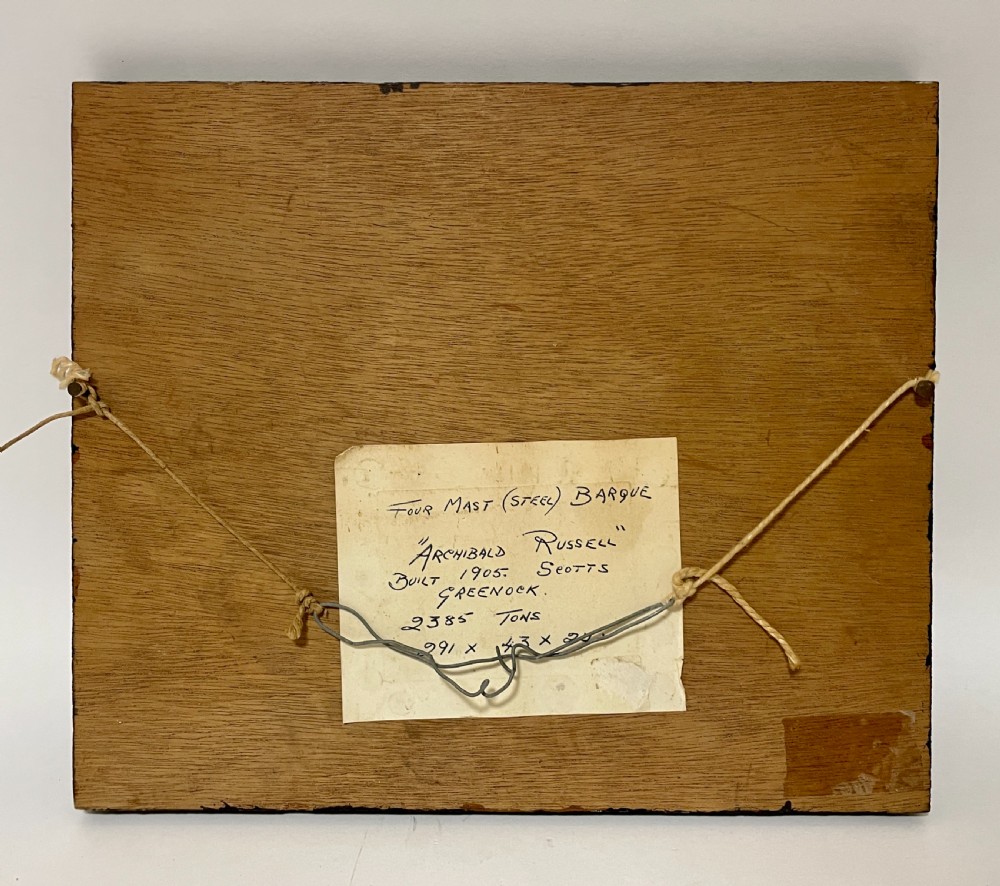 FOUR MAST (STEEL) BARQUE
"ARCHIBALD RUSSELL"
BUILT 1905. SCOTTS
GREENOCK.
2385 TONS
291 x 43 x